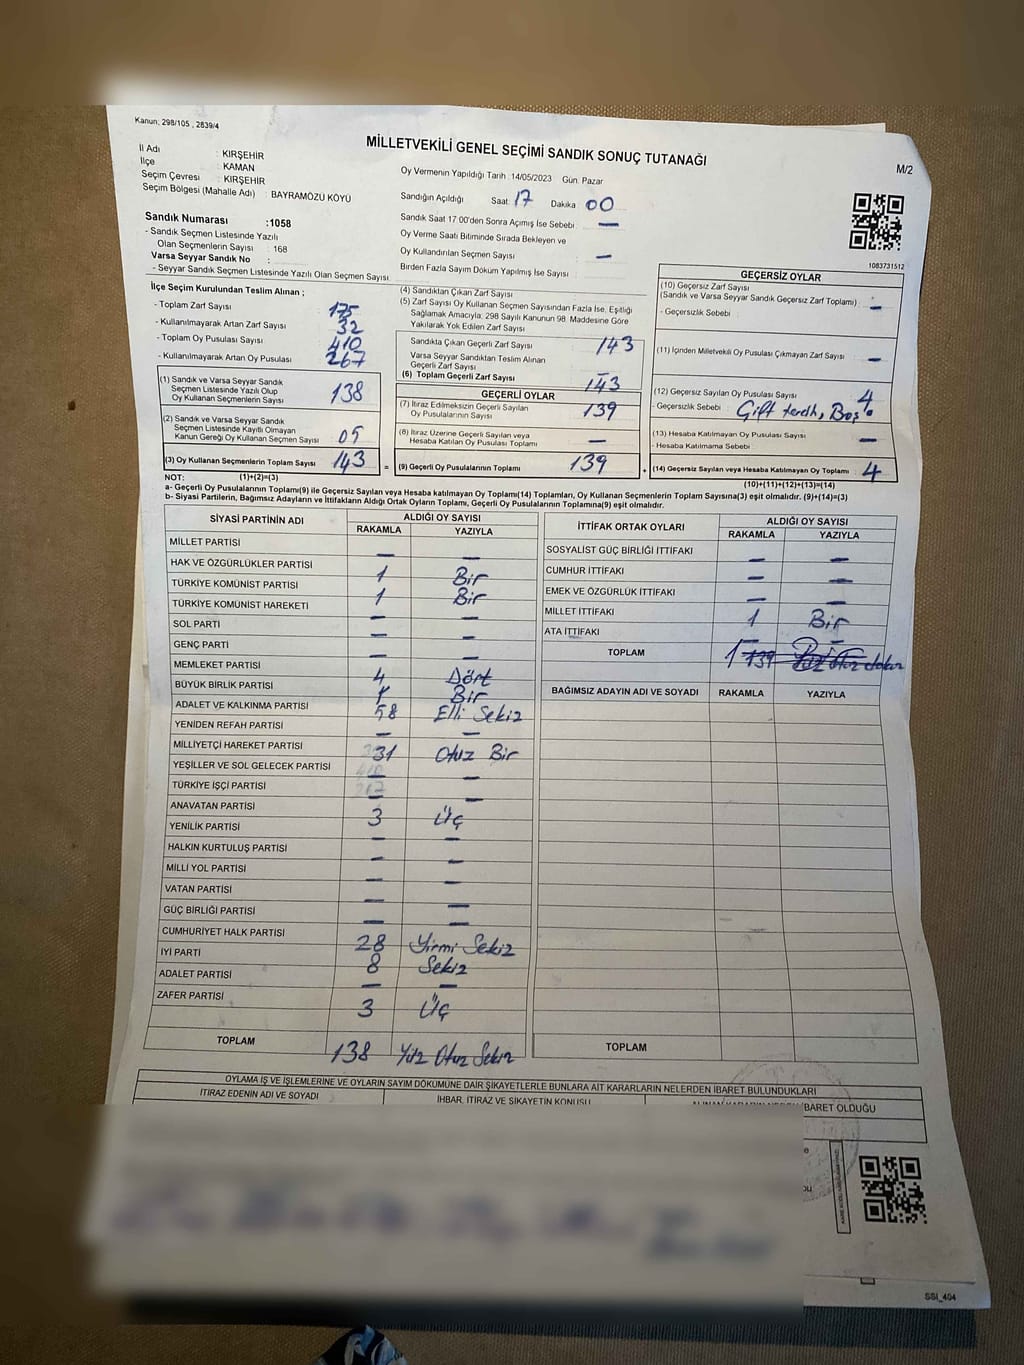 Kanun: 298/105 , 2839/4
MİLLETVEKİLİ GENEL SEÇİMİ SANDIK SONUÇ TUTANAĞI
M/2
İl Adı : KIRŞEHİR
İlçe : KAMAN
Seçim Çevresi : KIRŞEHİR
Seçim Bölgesi (Mahalle Adı) : BAYRAMÖZÜ KÖYÜ
Sandık Numarası :1058
- Sandık Seçmen Listesinde Yazılı
Olan Seçmenlerin Sayısı : 168
Varsa Seyyar Sandık No :
- Seyyar Sandık Seçmen Listesinde Yazılı Olan Seçmen Sayısı
Oy Vermenin Yapıldığı Tarih :14/05/2023 Gün: Pazar
Sandığın Açıldığı Saat 17 Dakika 00
Sandık Saat 17 00'den Sonra Açımış İse Sebebi : —
Oy Verme Saati Bitiminde Sırada Bekleyen ve
Oy Kullandırılan Seçmen Sayısı : —
Birden Fazla Sayım Döküm Yapılmış İse Sayısı
1083731512
İlçe Seçim Kurulundan Teslim Alınan ;
- Toplam Zarf Sayısı : 175
- Kullanılmayarak Artan Zarf Sayısı : 32
- Toplam Oy Pusulası Sayısı : 410
- Kullanılmayarak Artan Oy Pusulası : 267
(1) Sandık ve Varsa Seyyar Sandık
Seçmen Listesinde Yazılı Olup
Oy Kullanan Seçmenlerin Sayısı 138
(2) Sandık ve Varsa Seyyar Sandık
Seçmen Listesinde Kayıtlı Olmayan
Kanun Gereği Oy Kullanan Seçmen Sayısı 05
(3) Oy Kullanan Seçmenlerin Toplam Sayısı 143
(4) Sandıktan Çıkan Zarf Sayısı
(5) Zarf Sayısı Oy Kullanan Seçmen Sayısından Fazla İse, Eşitliği
Sağlamak Amacıyla; 298 Sayılı Kanunun 98. Maddesine Göre
Yakılarak Yok Edilen Zarf Sayısı
Sandıkta Çıkan Geçerli Zarf Sayısı 143
Varsa Seyyar Sandıktan Teslim Alınan
Geçerli Zarf Sayısı —
(6) Toplam Geçerli Zarf Sayısı 143
GEÇERLİ OYLAR
(7) İtiraz Edilmeksizin Geçerli Sayılan
Oy Pusulalarının Sayısı 139
(8) İtiraz Üzerine Geçerli Sayılan veya
Hesaba Katılan Oy Pusulası Toplamı —
= (9) Geçerli Oy Pusulalarının Toplamı 139
GEÇERSİZ OYLAR
(10) Geçersiz Zarf Sayısı
(Sandık ve Varsa Seyyar Sandık Geçersiz Zarf Toplamı) : —
- Geçersizlik Sebebi :
(11) İçinden Milletvekili Oy Pusulası Çıkmayan Zarf Sayısı : —
(12) Geçersiz Sayılan Oy Pusulası Sayısı : 4
- Geçersizlik Sebebi : Çift tercih, Boş
(13) Hesaba Katılmayan Oy Pusulası Sayısı : —
- Hesaba Katılmama Sebebi :
+ (14) Geçersiz Sayılan veya Hesaba Katılmayan Oy Toplamı 4
NOT: (1)+(2)=(3)
(10)+(11)+(12)+(13)=(14)
a- Geçerli Oy Pusulaları Toplamı(9) ile Geçersiz Sayılan veya Hesaba katılmayan Oy Toplamı(14) Toplamları, Oy Kullanan Seçmenlerin Toplam Sayısına(3) eşit olmalıdır. (9)+(14)=(3)
b- Siyasi Partilerin, Bağımsız Adayların ve İttifakların Aldığı Ortak Oyların Toplamı, Geçerli Oy Pusulalarının Toplamına(9) eşit olmalıdır.
SİYASİ PARTİNİN ADI
ALDIĞI OY SAYISI
RAKAMLA YAZIYLA
MİLLET PARTİSİ — —
HAK VE ÖZGÜRLÜKLER PARTİSİ 1 Bir
TÜRKİYE KOMÜNİST PARTİSİ 1 Bir
TÜRKİYE KOMÜNİST HAREKETİ — —
SOL PARTİ — —
GENÇ PARTİ — —
MEMLEKET PARTİSİ 4 Dört
BÜYÜK BİRLİK PARTİSİ 1 Bir
ADALET VE KALKINMA PARTİSİ 58 Elli Sekiz
YENİDEN REFAH PARTİSİ — —
MİLLİYETÇİ HAREKET PARTİSİ 31 Otuz Bir
YEŞİLLER VE SOL GELECEK PARTİSİ — —
TÜRKİYE İŞÇİ PARTİSİ — —
ANAVATAN PARTİSİ 3 Üç
YENİLİK PARTİSİ — —
HALKIN KURTULUŞ PARTİSİ — —
MİLLİ YOL PARTİSİ — —
VATAN PARTİSİ — —
GÜÇ BİRLİĞİ PARTİSİ — —
CUMHURİYET HALK PARTİSİ 28 Yirmi Sekiz
İYİ PARTİ 8 Sekiz
ADALET PARTİSİ — —
ZAFER PARTİSİ 3 Üç
TOPLAM 138 Yüz Otuz Sekiz
İTTİFAK ORTAK OYLARI
ALDIĞI OY SAYISI
RAKAMLA YAZIYLA
SOSYALİST GÜÇ BİRLİĞİ İTTİFAKI — —
CUMHUR İTTİFAKI — —
EMEK VE ÖZGÜRLÜK İTTİFAKI — —
MİLLET İTTİFAKI 1 Bir
ATA İTTİFAKI — —
TOPLAM 1 139
BAĞIMSIZ ADAYIN ADI VE SOYADI RAKAMLA YAZIYLA
TOPLAM
OYLAMA İŞ VE İŞLEMLERİNE VE OYLARIN SAYIM DÖKÜMÜNE DAİR ŞİKAYETLERLE BUNLARA AİT KARARLARIN NELERDEN İBARET BULUNDUKLARI
İTİRAZ EDENİN ADI VE SOYADI
İHBAR, İTİRAZ VE ŞİKAYETİN KONUSU
İBARET OLDUĞU
SSI_404